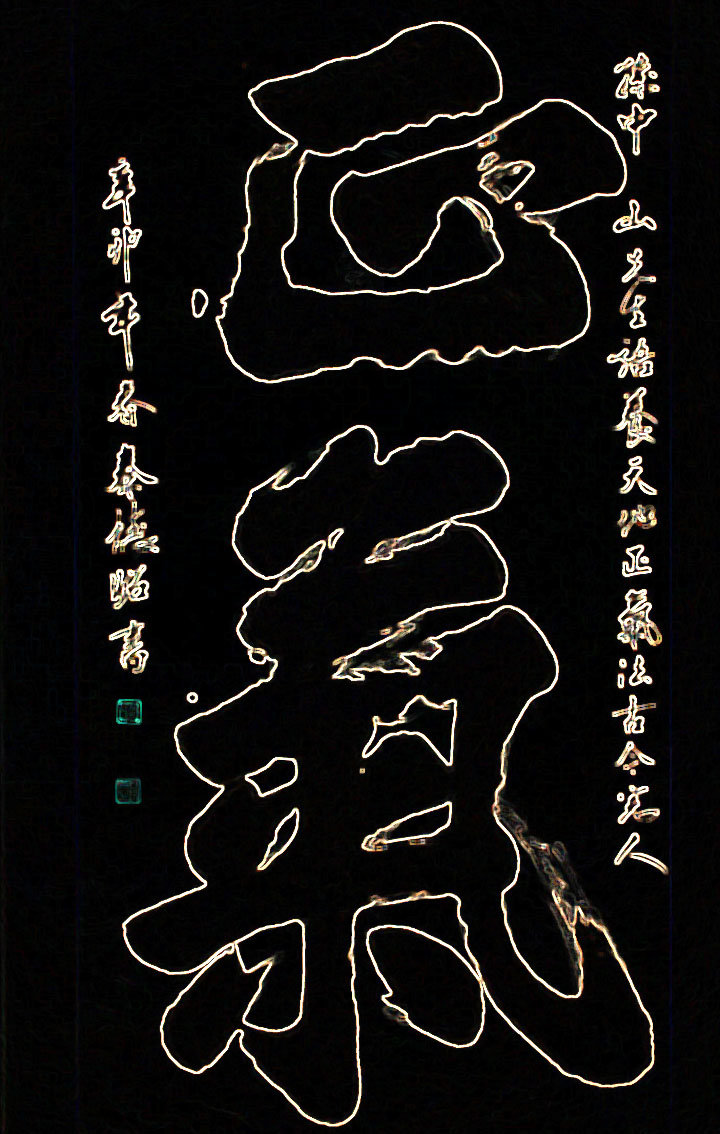 孫中山先生語養天地正氣法古今完人
正氣
辛卯年春秦德昭書